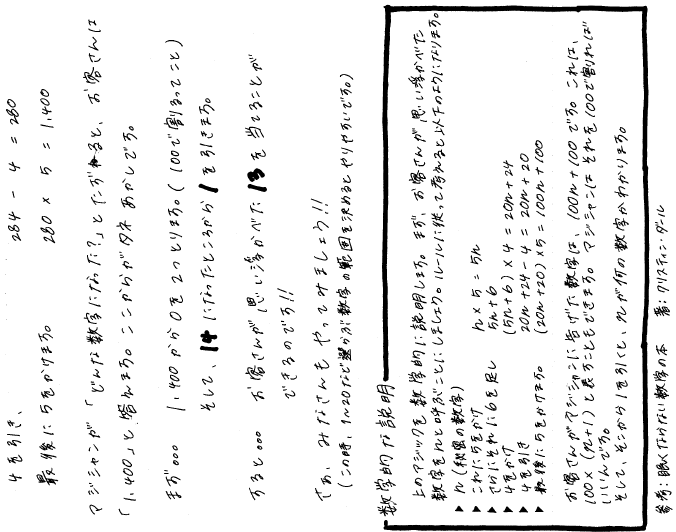 4を引き、 284 - 4 = 280
最後に5をかけます。 280 × 5 = 1,400
マジシャンが「どんな数字になった?」とたずねると、お客さんは
「1,400」と答えます。ここからがタネあかしです。
まず。。。 1,400から0を2つとります。(100で割るってこと)
そして、14になったところから1を引きます。
すると。。。 お客さんが思い浮かべた13を当てることが
できるのです!!
さぁ、みなさんもやってみましょう!!
(この時、1~20など選ぶ数字の範囲を決めるとやりやすいです。)
数学的な説明
上のマジックを数学的に説明します。まず、お客さんが思い浮かべた
数字をnと呼ぶことにしましょう。ルールに従って考えると以下のようになります。
▶ n (秘密の数字)
▶ これに5をかけ n × 5 = 5n
▶ さらにそれに6を足し 5n + 6
▶ 4をかけ (5n + 6) × 4 = 20n + 24
▶ 4を引き 20n + 24 - 4 = 20n + 20
▶ 最後に5をかけます。 (20n + 20) × 5 = 100n + 100
お客さんがマジシャンに告げた数字は、100n + 100です。これは、
100 × (n + 1) と表すこともできます。マジシャンはそれを100で割れば
いいんです。
そして、そこから1を引くと、nが何の数字かわかります。
参考: 眠れなくなる数学の本 著: クリスティン・ダール